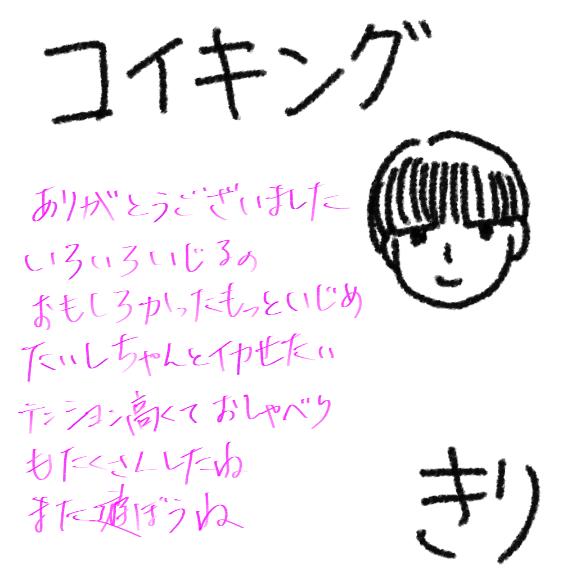 コイキング
ありがとうございました
いろいろいじるの
おもしろかったもっといじめ
たいしちゃんとイカせたい
テンション高くておしゃべり
もたくさんしたね
また遊ぼうね
きり